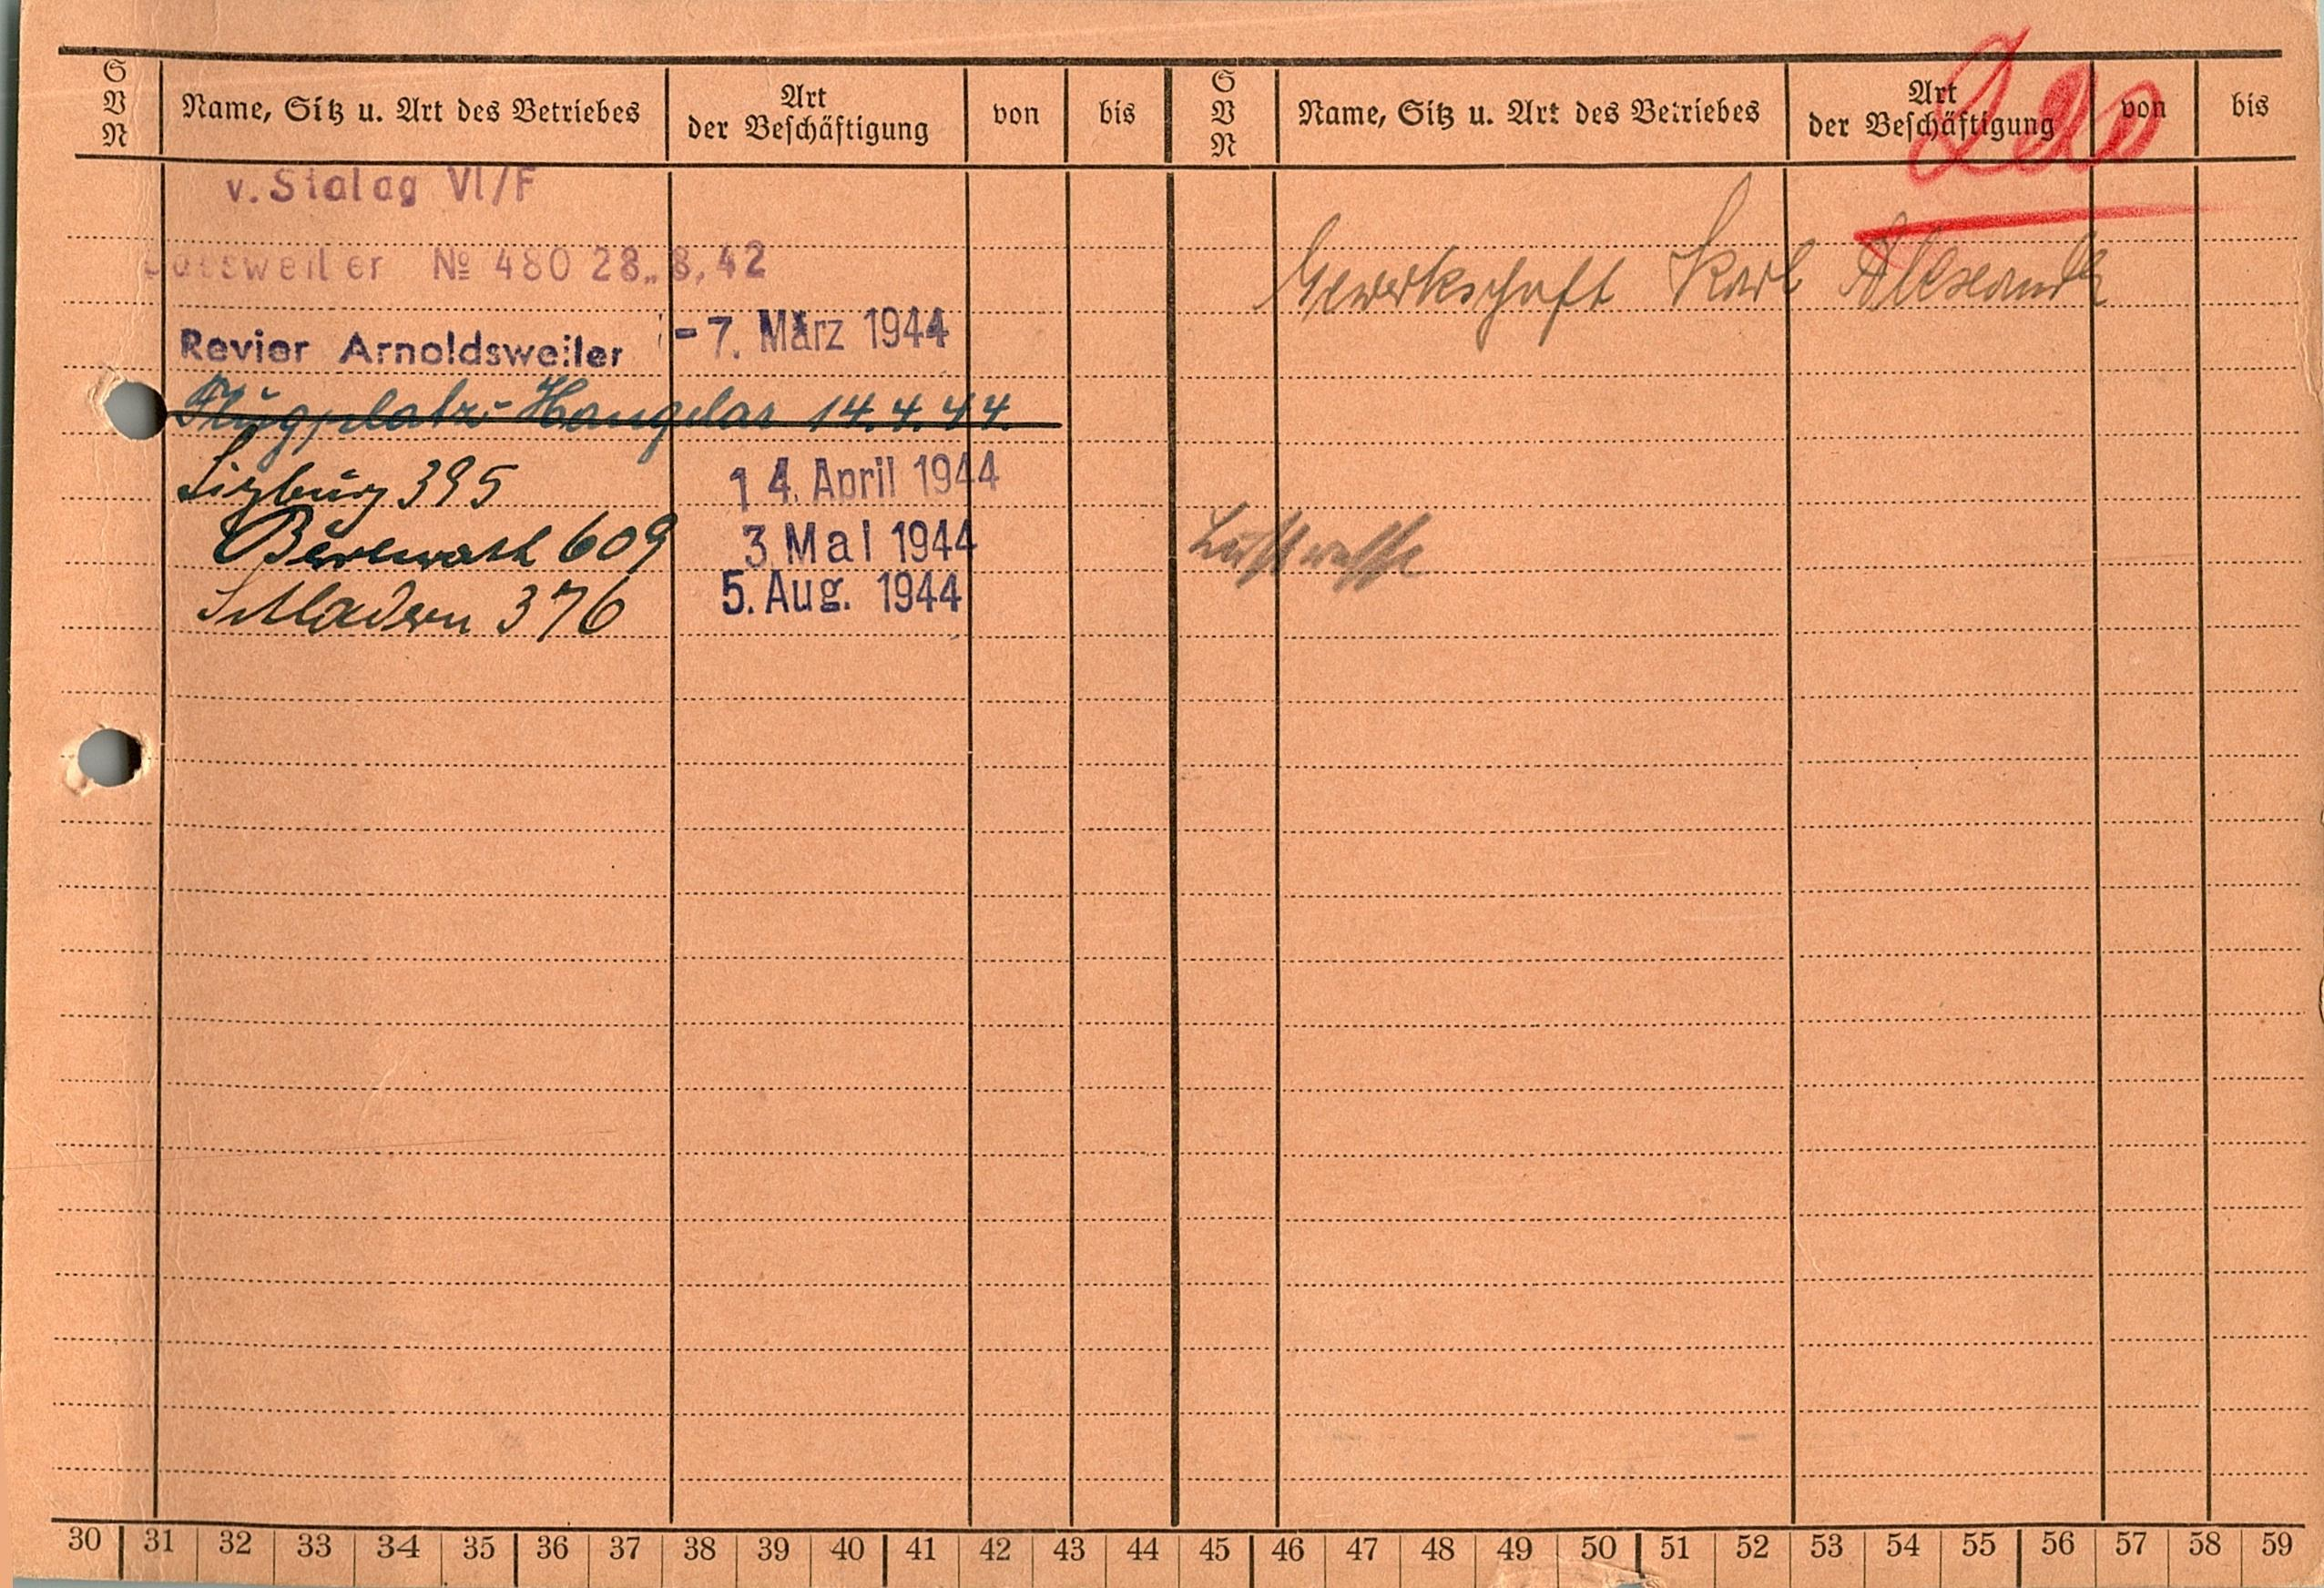 S V N Name, Sitz u. Art des Betriebes Art der Beschäftigung von bis S V N Name, Sitz u. Art des Betriebes Art der Beschäftigung von bis
v. Stalag VI/F
Nº 480 28.8.42
Gewerkschaft Karl Alexander
Revier Arnoldsweiler - 7. März 1944
Flugplatz-Hangelar 14.4.44.
395 14. April 1944
609 3. Mai 1944
Luftwaffe
Schladern 376 5. Aug. 1944
30 31 32 33 34 35 36 37 38 39 40 41 42 43 44 45 46 47 48 49 50 51 52 53 54 55 56 57 58 59